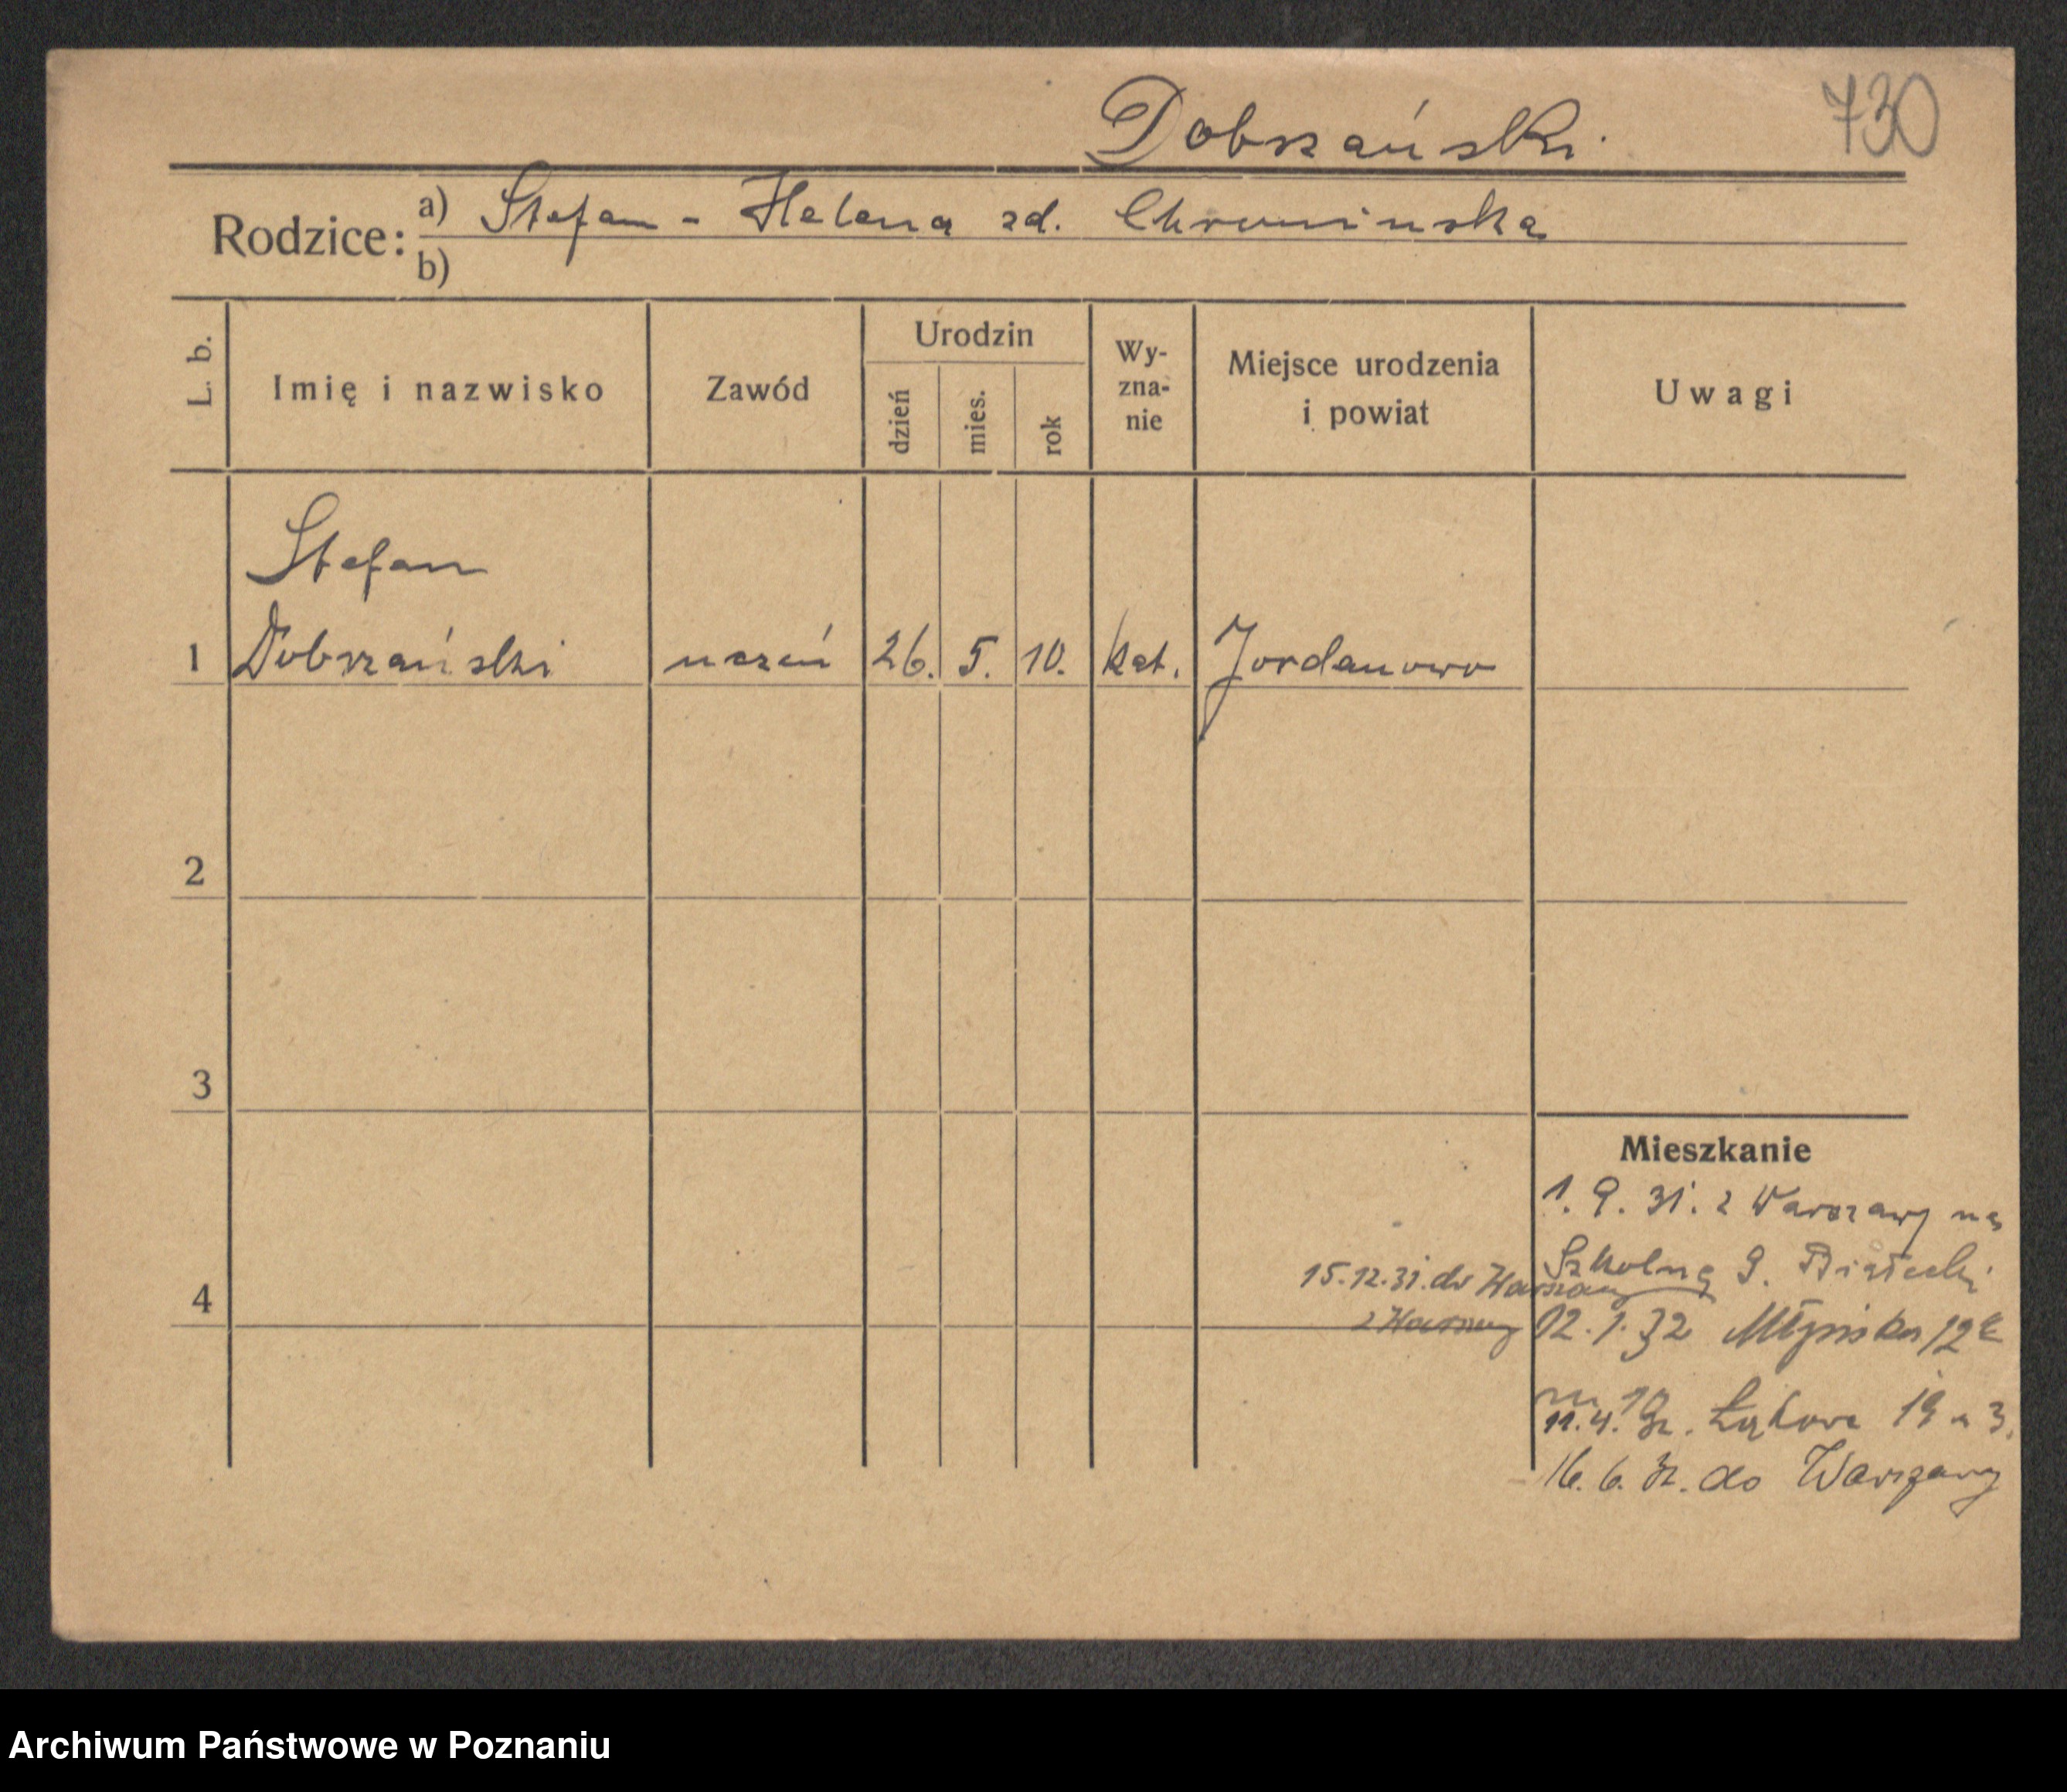 Dobrzański.
730
Rodzice: a) Stefan - Helena zd. Chromińska
b)
L. b.
Imię i nazwisko
Zawód
Urodzin
dzień
mies.
rok
Wy-
zna-
nie
Miejsce urodzenia
i powiat
Uwagi
Stefan
1 Dobrzański uczeń 26. 5. 10. kat. Jordanowo
2
3
Mieszkanie
1. 9. 31. z Warszawy na
Szkolną 9. Białecki
15.12.31. do Warszawy
4
z Warszawy 02.1.32 Młyńska 12
11.4. 32. Łąkowa 19 3.
16. 6. 32. do Warszawy
Archiwum Państwowe w Poznaniu